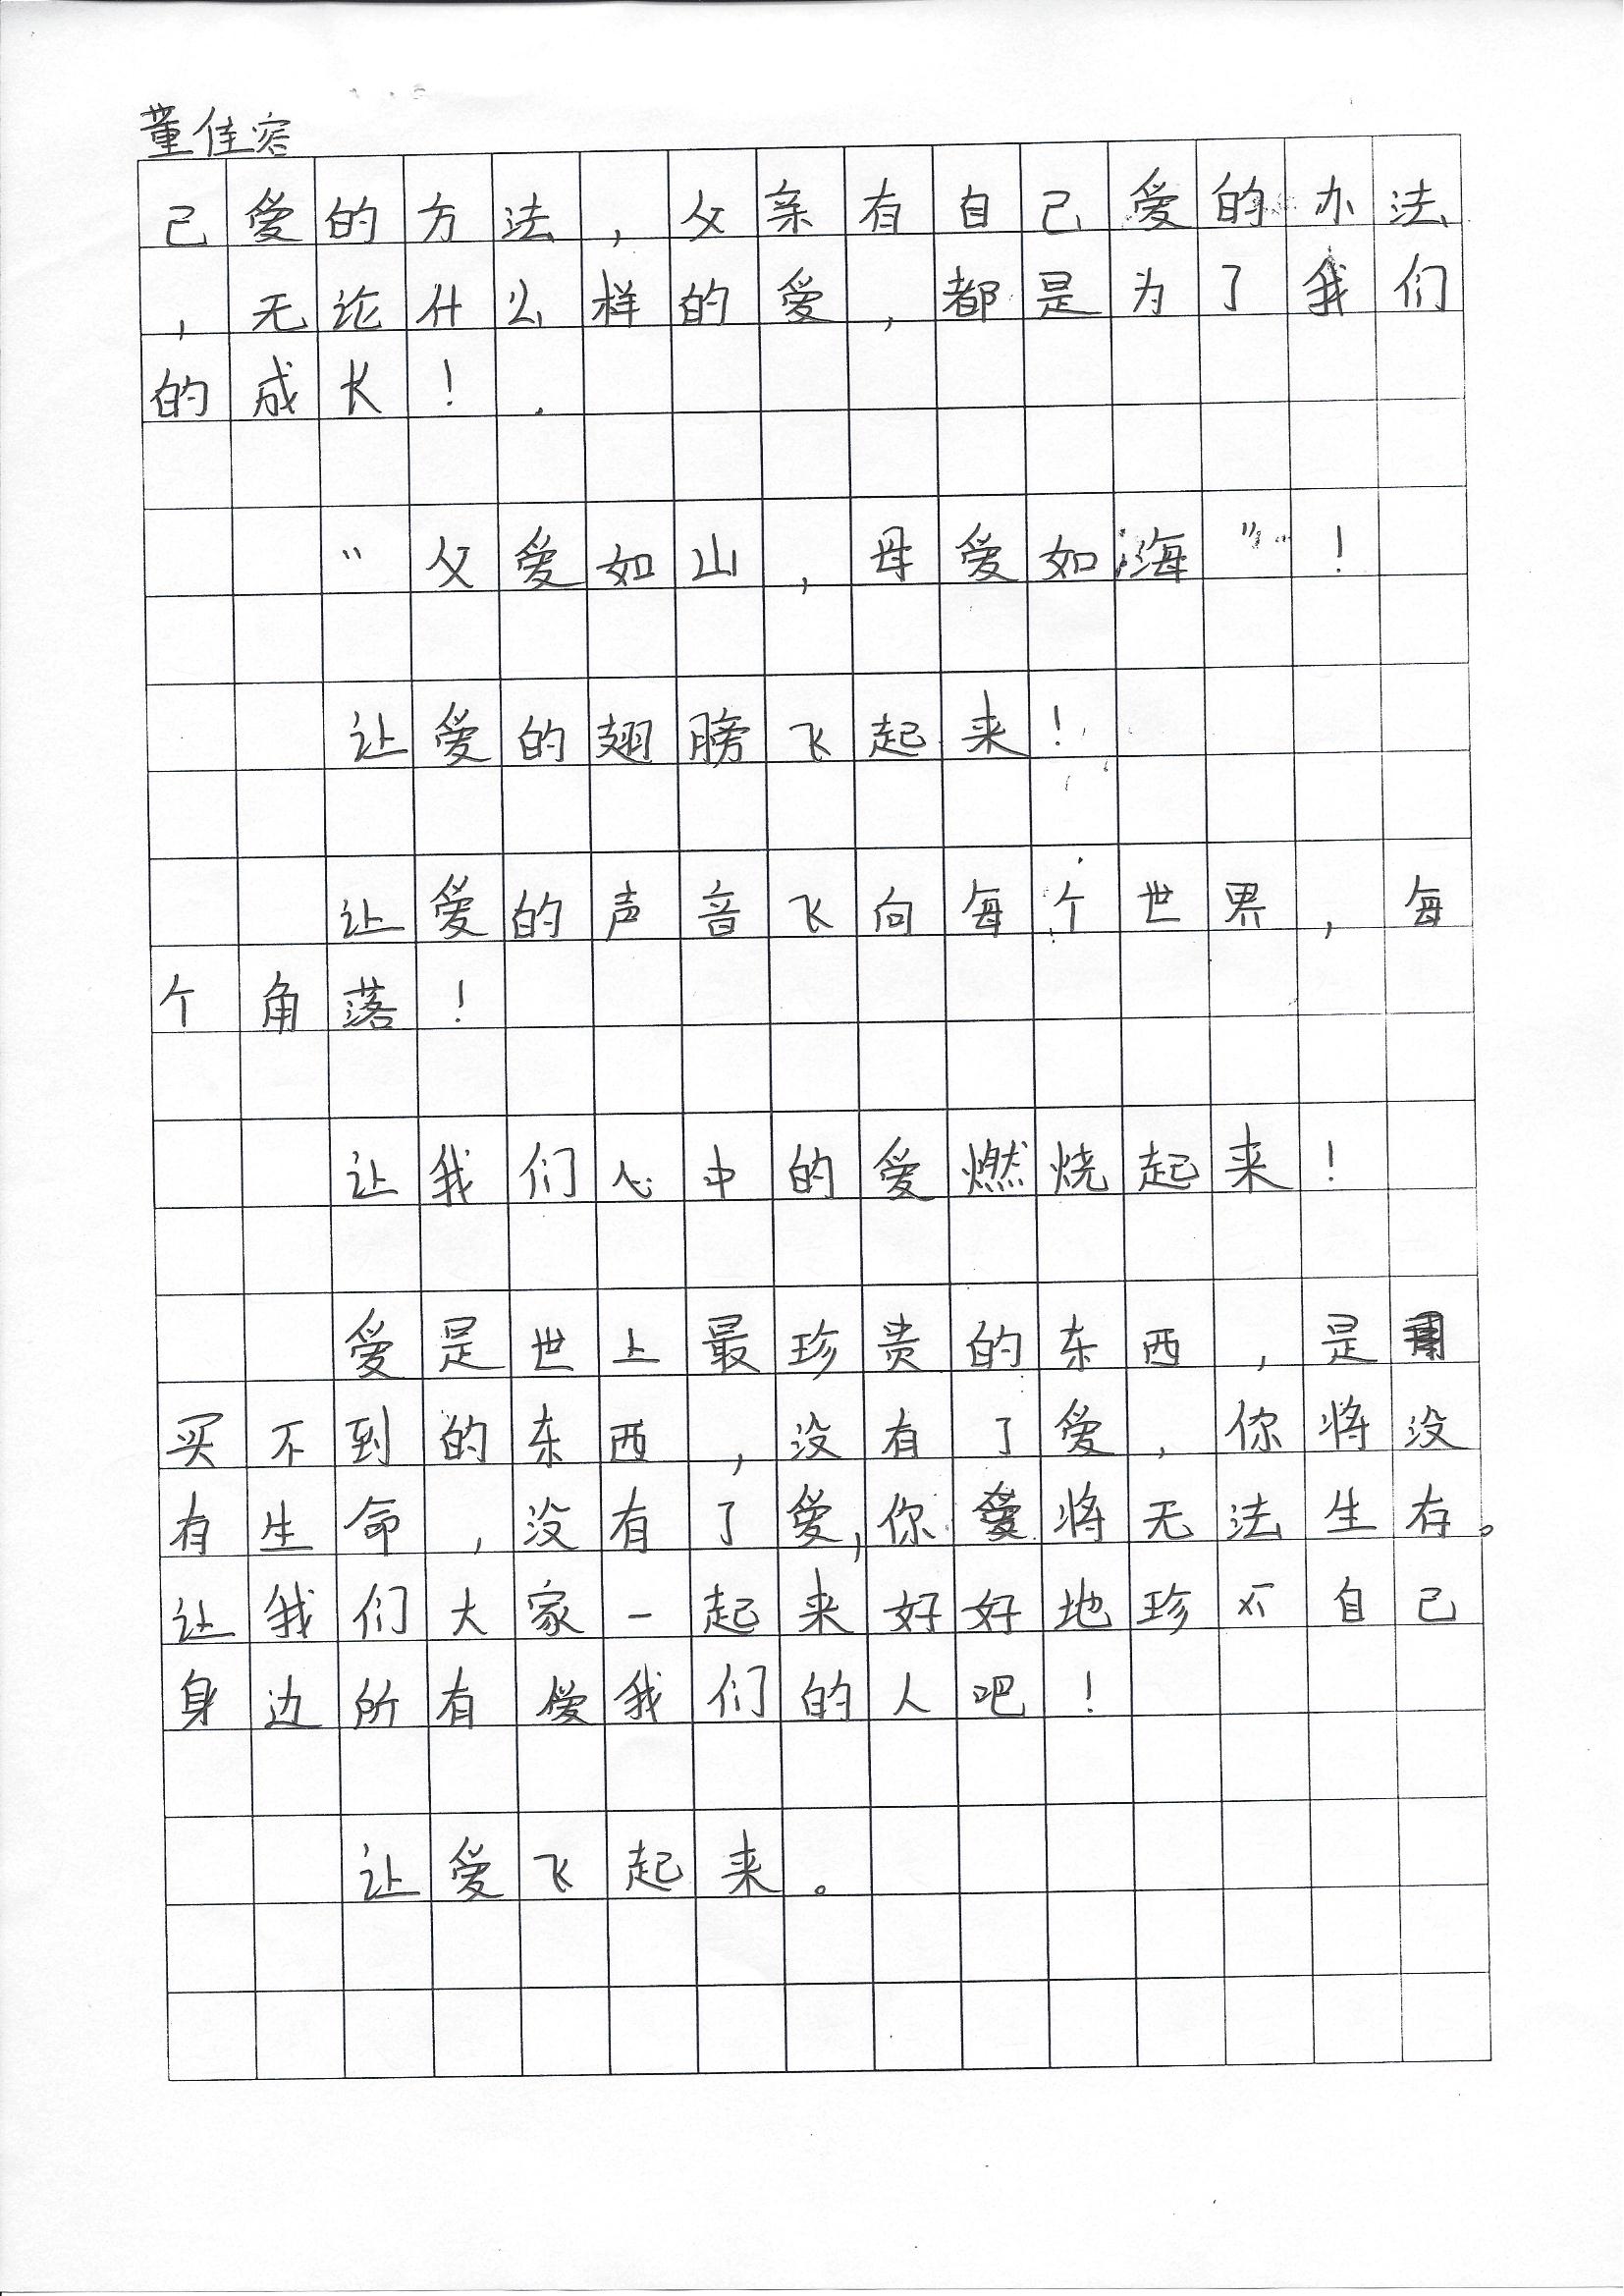 董佳容
己爱的方法，父亲有自己爱的办法
，无论什么样的爱，都是为了我们
的成长！
“父爱如山，母爱如海”！
让爱的翅膀飞起来！
让爱的声音飞向每个世界，每
个角落！
让我们心中的爱燃烧起来！
爱是世上最珍贵的东西，是
买不到的东西，没有了爱，你将没
有生命，没有了爱，你爱将无法生存。
让我们大家一起来好好地珍不自己
身边所有爱我们的人吧！
让爱飞起来。